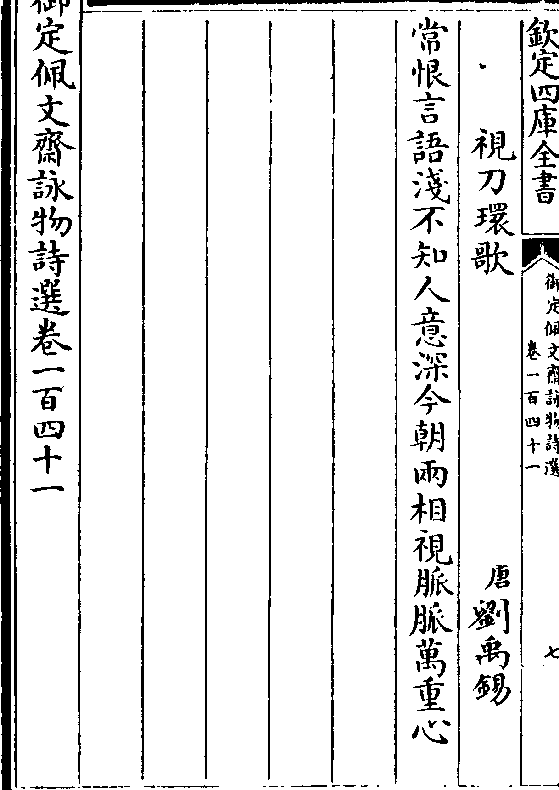 欽定四庫全書
御定佩文齋詠物詩選
卷一百四十一
七
視刀環歌
唐劉禹錫
常恨言語淺不知人意深今朝兩相視脈脈萬重心
御定佩文齋詠物詩選卷一百四十一